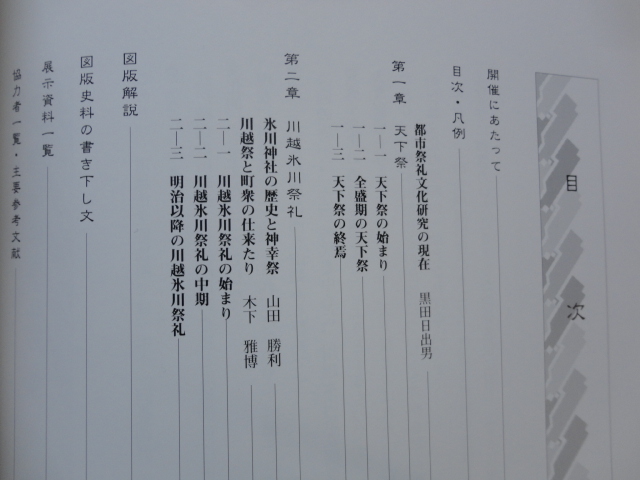 目次
開催にあたって
目次・凡例
第一章 天下祭
都市祭礼文化研究の現在 黒田日出男
一―一 天下祭の始まり
一―二 全盛期の天下祭
一―三 天下祭の終焉
第二章 川越氷川祭礼
氷川神社の歴史と神幸祭 山田 勝利
川越祭と町衆の仕来たり 木下 雅博
二―一 川越氷川祭礼の始まり
二―二 川越氷川祭礼の中期
二―三 明治以降の川越氷川祭礼
図版解説
図版史料の書き下し文
展示資料一覧
協力者一覧・主要参考文献